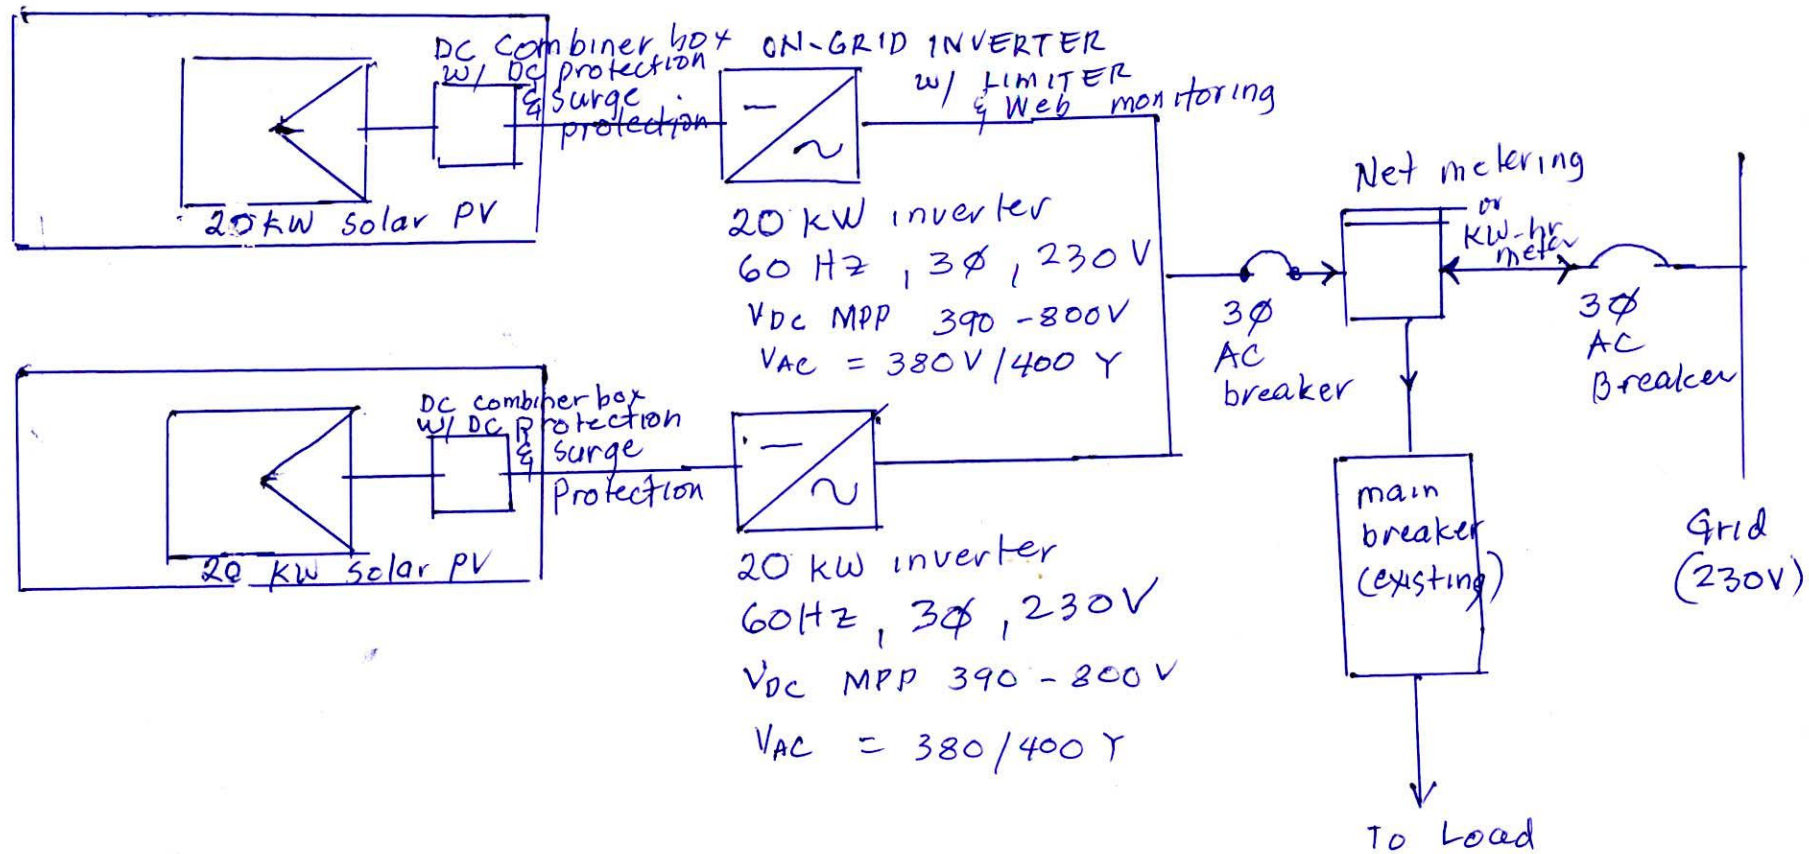 DC Combiner box
w/ DC protection
& surge
protection
20 KW Solar PV
ON-GRID INVERTER
w/ LIMITER
& Web monitoring
20 KW inverter
60 Hz, 3Ø, 230V
VDC MPP 390-800V
VAC = 380V/400 Y
DC combiner box
w/ DC Protection
& surge
Protection
20 KW Solar PV
20 KW inverter
60Hz, 3Ø, 230V
VDC MPP 390-800V
VAC = 380/400 Y
3Ø
AC
breaker
Net metering
or
KW-hr
meter
3Ø
AC
Breaker
main
breaker
(existing)
To Load
Grid
(230V)